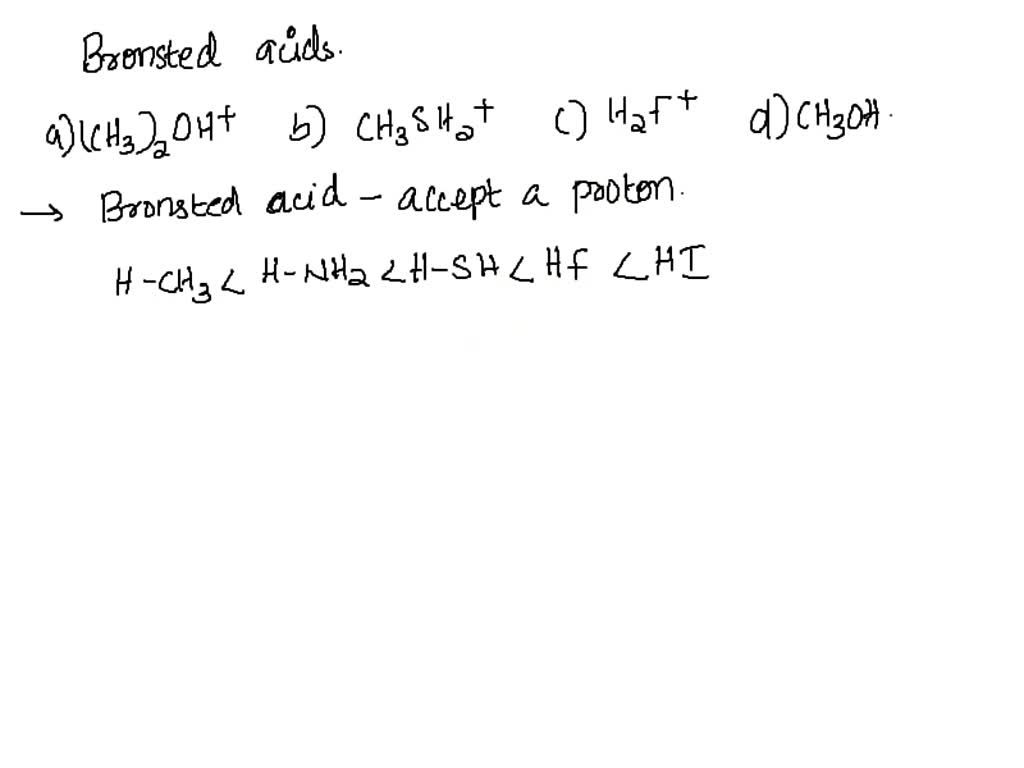 Bronsted acids.
a) (CH3)2OH+ b) CH3SH2+ c) H2F+ d) CH3OH.
→ Bronsted acid – accept a proton.
H-CH3 < H-NH2 < H-SH < HF < HI